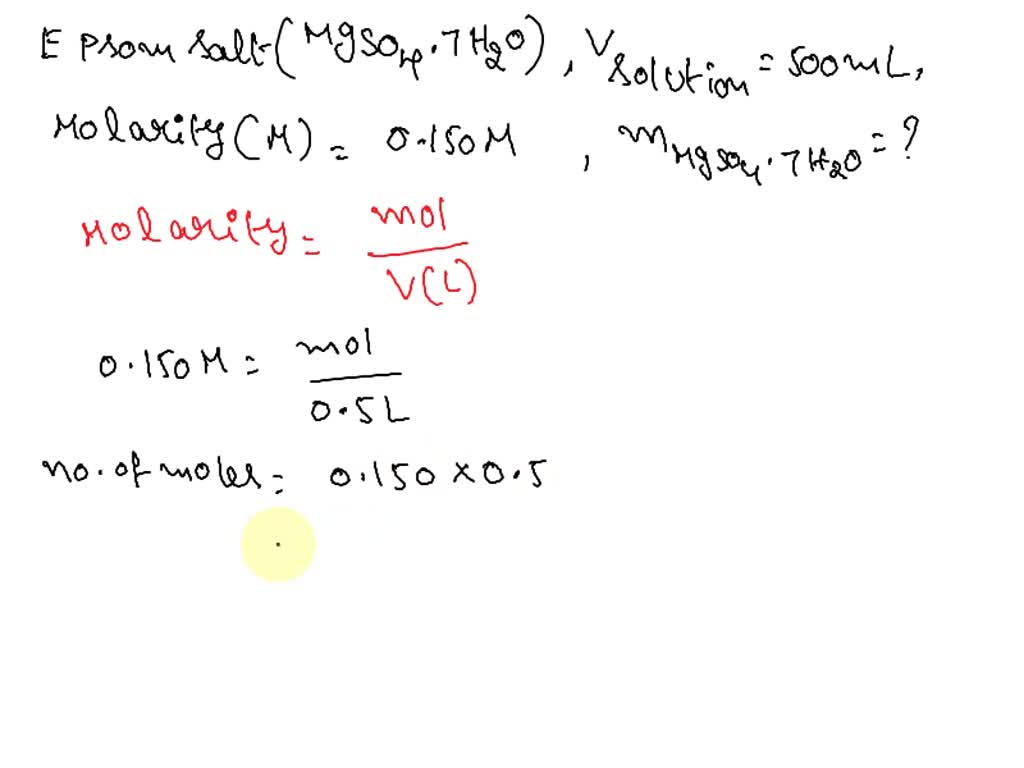 Epsom salt (MgSO4.7H2O), Vsolution = 500mL,
Molarity (M) = 0.150M, mMgSO4.7H2O = ?
Molarity = mol / V(L)
0.150M = mol / 0.5L
no. of moles = 0.150 × 0.5